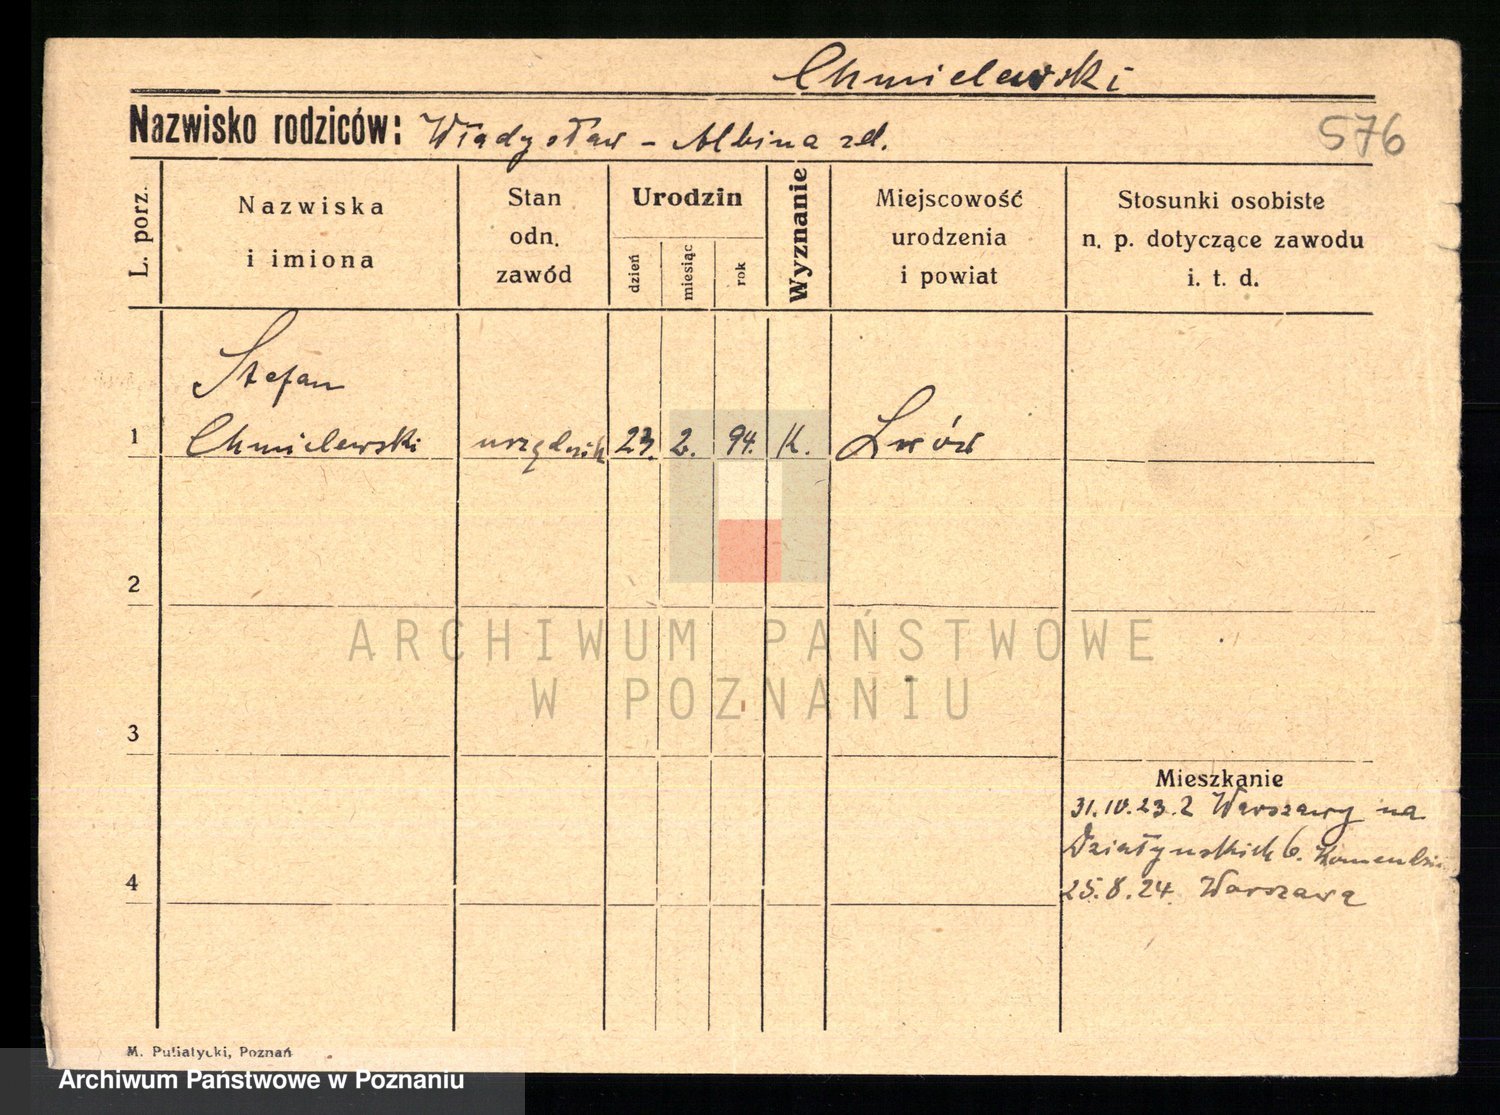 Chmielewski
Nazwisko rodziców: Władysław - Albina zd.
576
L. porz.
Nazwiska
i imiona
Stan
odn.
zawód
Urodzin
dzień
miesiąc
rok
Wyznanie
Miejscowość
urodzenia
i powiat
Stosunki osobiste
n. p. dotyczące zawodu
i. t. d.
Stefan
1 Chmielewski urzędnik 23. 2. 94. K. Lwów
2
3
4
Mieszkanie
31.10.23. z Warszawy na
Działyńskich 6.
25.8.24. Warszawa
ARCHIWUM PAŃSTWOWE
W POZNANIU
M. Pułiatycki, Poznań
Archiwum Państwowe w Poznaniu